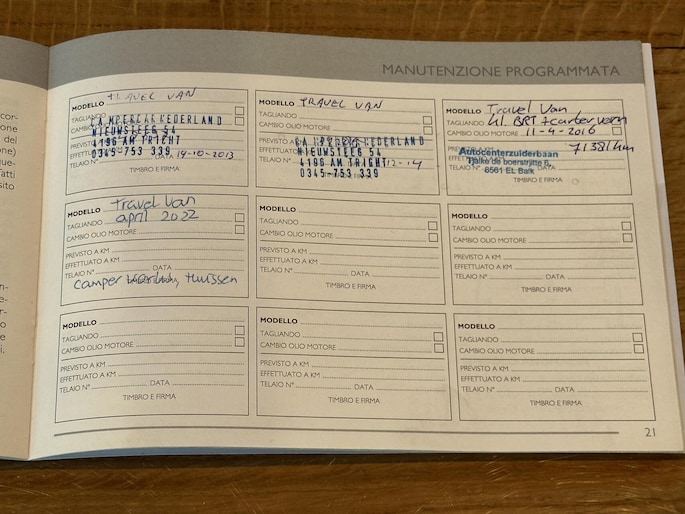 cor-
one
dei
one)
que-
fatti
sito
n-
e-
r-
o
e
i.
MANUTENZIONE PROGRAMMATA
MODELLO TRAVEL VAN
TAGLIANDO
CAMPERCAR NEDERLAND
CAMBIO OLIO MOTORE
NIEUWSTEEG 54
4196 AM TRICHT
0345-753 339 14-10-2013
TELAIO N°
TIMBRO E FIRMA
MODELLO TRAVEL VAN
TAGLIANDO
CAMBIO OLIO MOTORE
CAMPERCAR NEDERLAND
NIEUWSTEEG 54
4196 AM TRICHT 12-14
0345-753 339
TIMBRO E FIRMA
MODELLO Travel Van
TAGLIANDO kl. BRT + cartervern
CAMBIO OLIO MOTORE 11-4-2016
71381km
Autocenterzuiderbaan
Tjalke de boerstrjitte 6,
8561 EL Balk
TIMBRO E FIRMA
MODELLO Travel Van
TAGLIANDO april 2022
CAMBIO OLIO MOTORE
PREVISTO A KM
EFFETTUATO A KM
TELAIO N° DATA
camper huissen
TIMBRO E FIRMA
MODELLO
TAGLIANDO
CAMBIO OLIO MOTORE
PREVISTO A KM
EFFETTUATO A KM
TELAIO N° DATA
TIMBRO E FIRMA
MODELLO
TAGLIANDO
CAMBIO OLIO MOTORE
PREVISTO A KM
EFFETTUATO A KM
TELAIO N° DATA
TIMBRO E FIRMA
MODELLO
TAGLIANDO
CAMBIO OLIO MOTORE
PREVISTO A KM
EFFETTUATO A KM
TELAIO N° DATA
TIMBRO E FIRMA
MODELLO
TAGLIANDO
CAMBIO OLIO MOTORE
PREVISTO A KM
EFFETTUATO A KM
TELAIO N° DATA
TIMBRO E FIRMA
MODELLO
TAGLIANDO
CAMBIO OLIO MOTORE
PREVISTO A KM
EFFETTUATO A KM
TELAIO N° DATA
TIMBRO E FIRMA
21